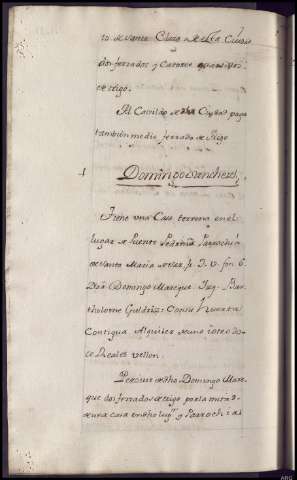 to de Santa Clara de dha Ciudad
dos ferrados y Catorce quartillos
de trigo.
Al Cavildo de dha Ciudad paga
tambien medio ferrado de trigo
Domingo
Tiene una Casa terrena en el
lugar de Puente Pedriña Parrochia
de Santa Maria
Dro Domingo Mareque. Izq. Bar-
tholome Con su Huerta
Contigua Alquiler de uno
ce Reales vellon.
Percive de dho Domingo Mare-
que dos ferrados de trigo por la mitad
de una casa en dho lugr y Parrochial